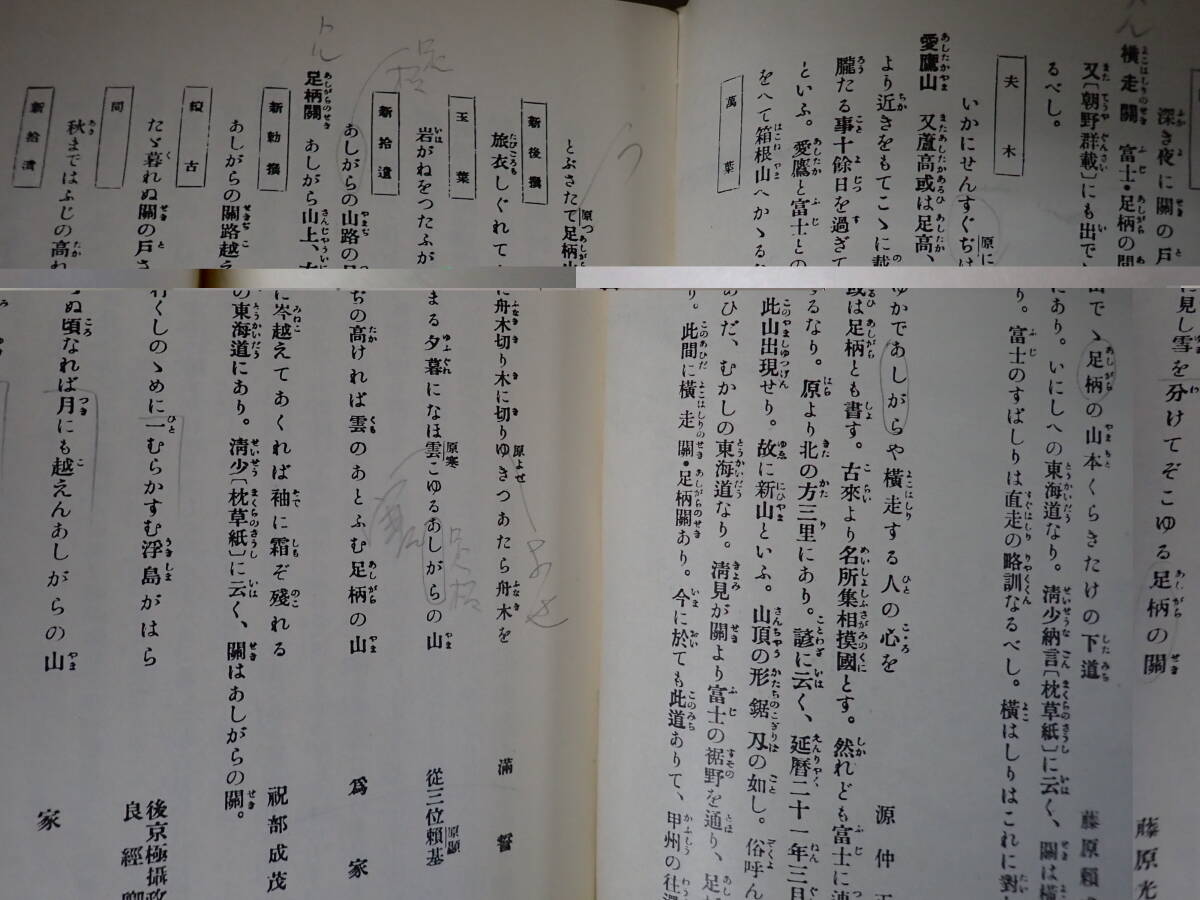 深き夜に關の戸
橫走關 富士・足柄の間
又〔朝野群載〕にも出で
るべし。
夫木
いかにせんすぐちは
愛鷹山 又蘆高或は足高、
より近きをもてこゝに載
朧たる事十餘日を過ぎて
といふ。愛鷹と富士との
をへて箱根山へかゝるな
萬葉
とぶさたて足柄山
新後撰
旅衣しぐれて
玉葉
岩がねをつたふが
新拾遺
あしがらの山路の
足柄關 あしがら山上、
新勅撰
あしがらの關路越え
續古
たゞ暮れぬ關の戸さ
同
秋まではふじの高ね
新拾遺
に見し雪を分けてぞこゆる足柄の關 藤原光
出で、足柄の山本くらきたけの下道 藤原賴
にあり。いにしへの東海道なり。淸少納言〔枕草紙〕に云く、關は橫
り。富士のすばしりは直走の略訓なるべし。橫はしりはこれに對
ゆかであしがらや橫走する人の心を 源仲正
或は足柄とも書す。古來より名所集相摸國とす。然れども富士に連
するなり。原より北の方三里にあり。諺に云く、延曆二十一年三月
此山出現せり。故に新山といふ。山頂の形鋸刄の如し。俗呼ん
あひだ、むかしの東海道なり。淸見が關より富士の裾野を通り、足
り。此間に橫走關・足柄關あり。今に於ても此道ありて、甲州の往還
に舟木切り木に切りゆきつあたら舟木を 滿誓
まる夕暮になほ雲こゆるあしがらの山 從三位賴基
ちの高ければ雲のあとふむ足柄の山 爲家
に岑越えてあくれば袖に霜ぞ殘れる 祝部成茂
の東海道にあり。淸少〔枕草紙〕に云く、關はあしがらの關。
行くしのゝめに一むらかすむ浮島がはら 後京極攝政良經卿
らぬ頃なれば月にも越えんあしがらの山 家